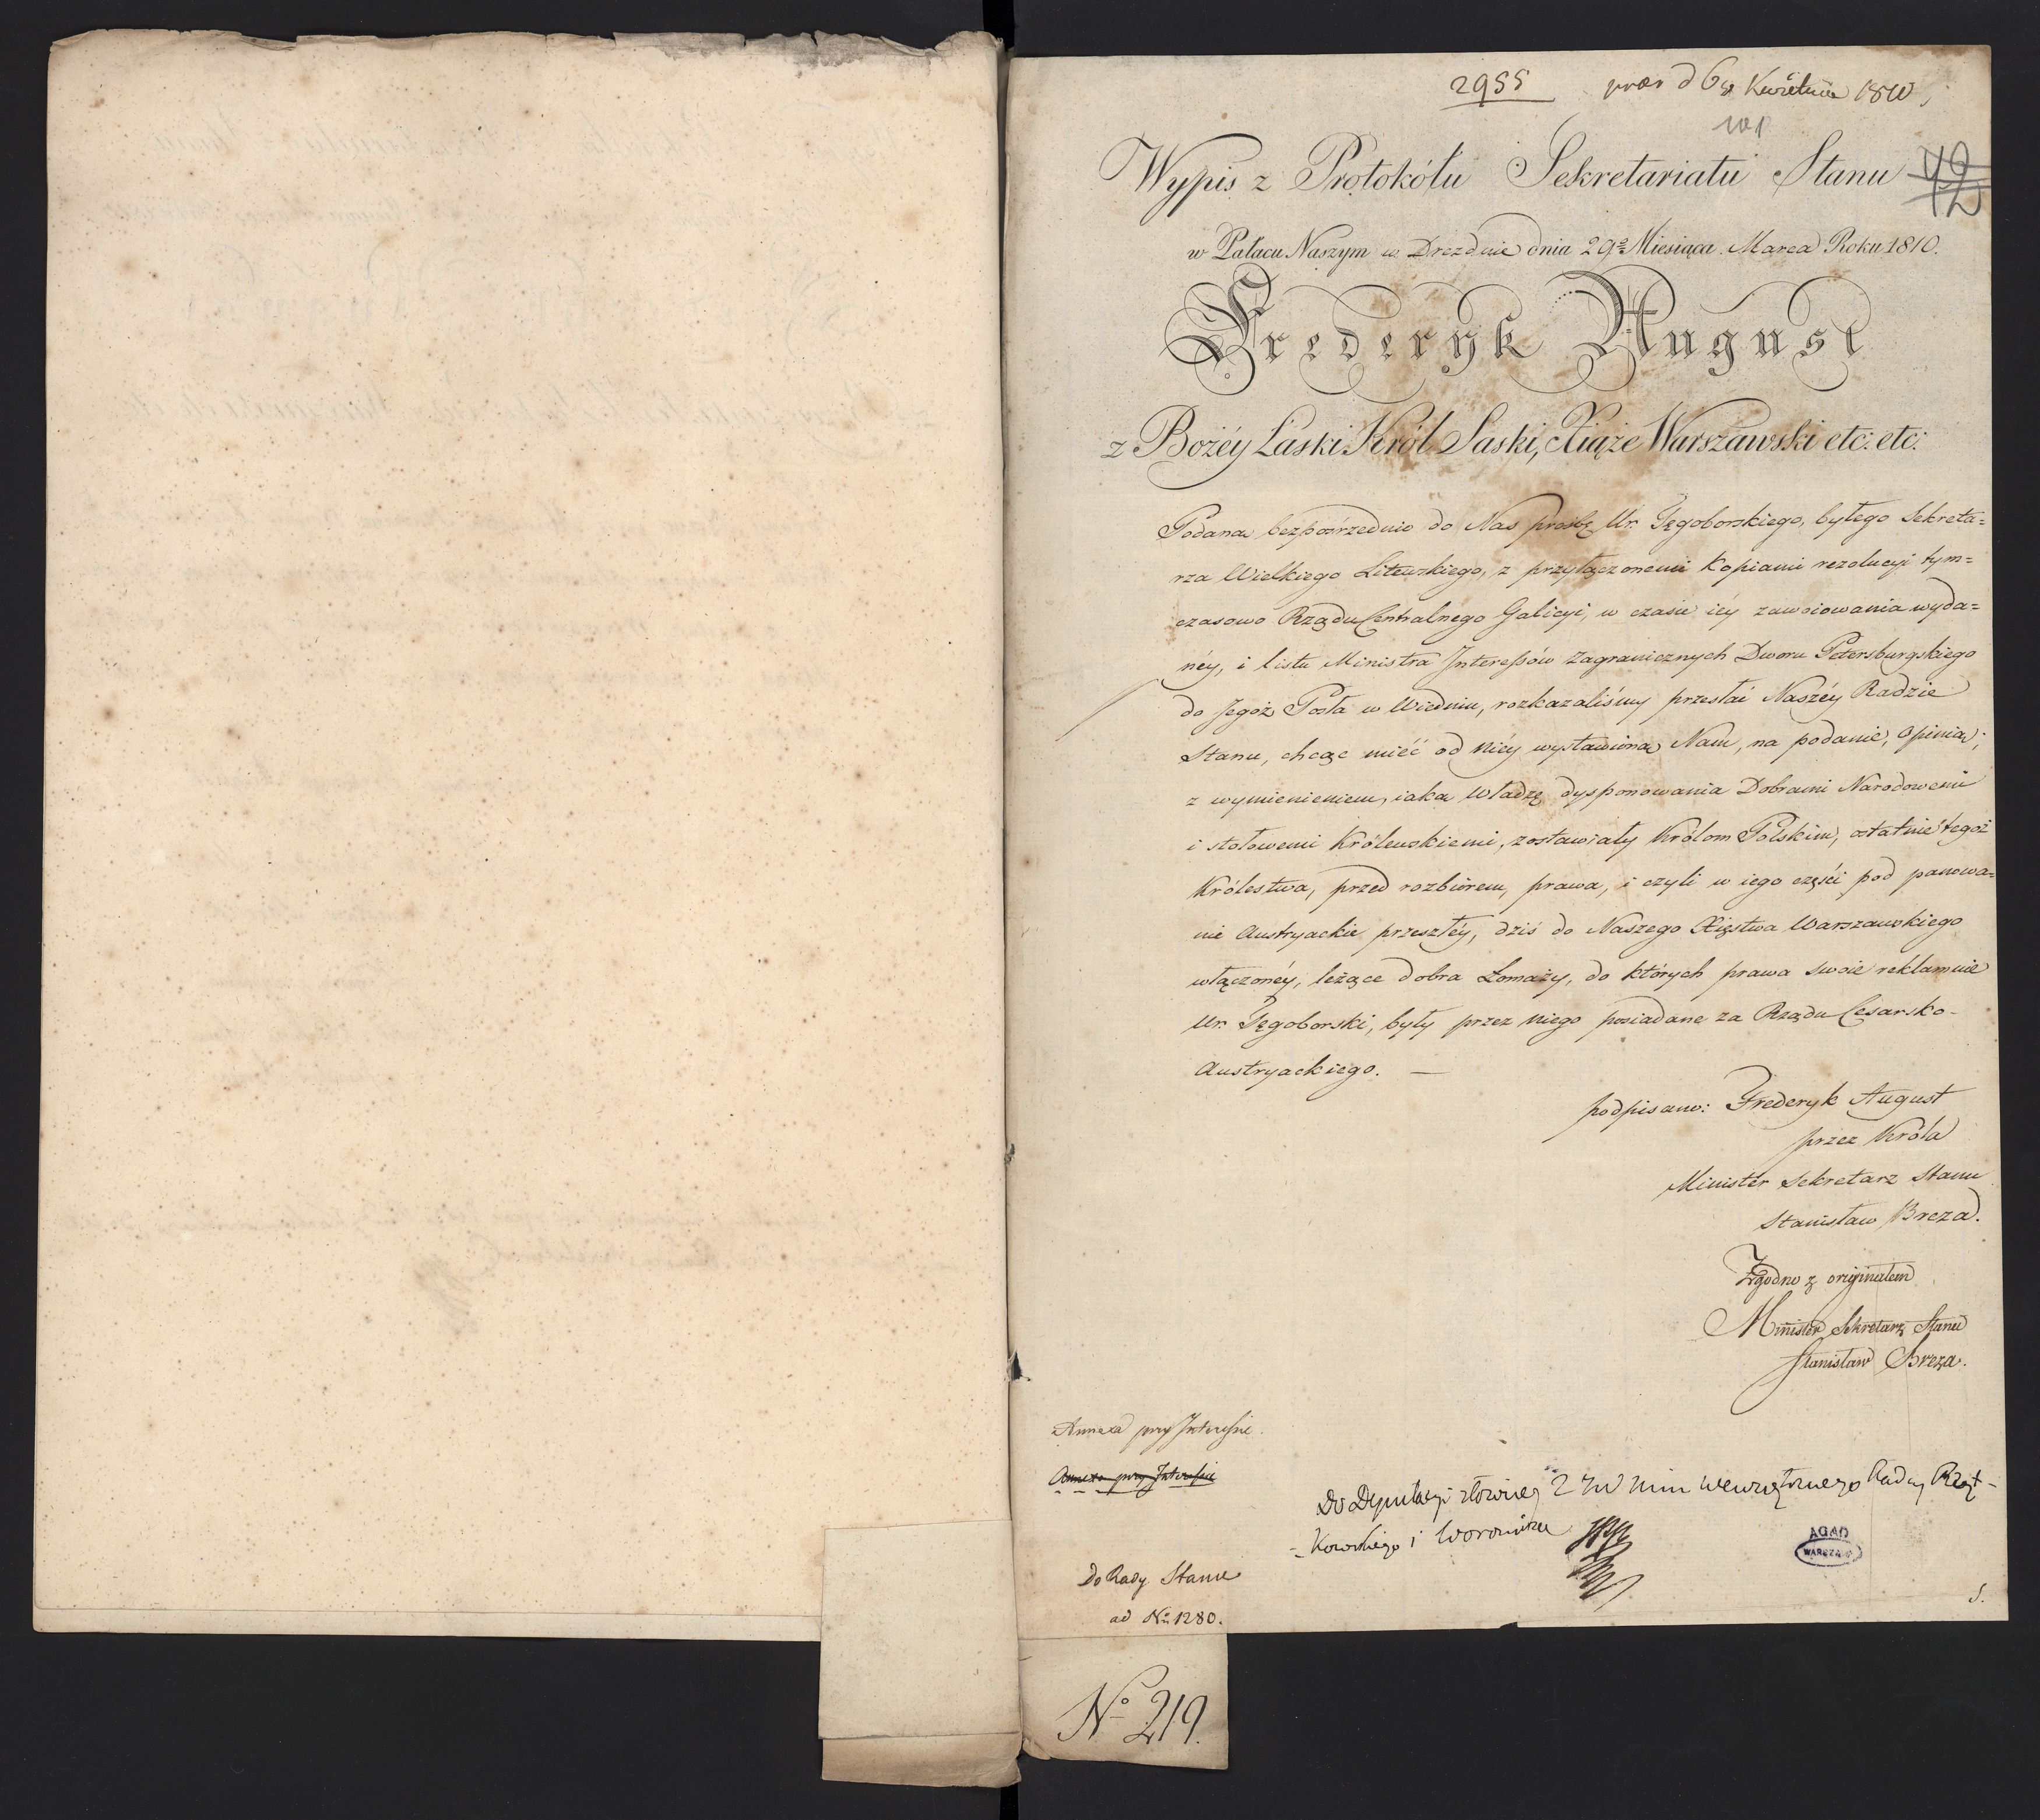 2955 præs d 6 Kwietnia 1810
101
Wypis z Protokółu Sekretariatu Stanu
w Pałacu Naszym w Dreznie dnia 29º Miesiąca Marca Roku 1810.
Frederyk August
z Bożéy Łaski Król Saski, Xiąże Warszawski etc: etc:
Podaną bezpośrzednio do Nas prośbę Ur. Tęgoborskiego, byłego Sekreta=
rza Wielkiego Litewskiego, z przyłączonemi Kopiami rezolucyi tym=
czasowo Rządu Centralnego Galicyi, w czasie iéy zawoiowania wyda=
néy, i listu Ministra Interessów Zagranicznych Dworu Petersburgskiego
do Jegoż Posła w Wiedniu, rozkazaliśmy przesłać Naszéy Radzie
Stanu, chcąc mieć od niéy wystawioną Nam, na podanie, Opinią;
z wymienieniem, iaką Władzę dysponowania Dobrami Narodowemi
i stołowemi Królewskiemi, zostawiały Królom Polskim, ostatnie tegoż
Królestwa, przed rozbiorem, prawa, i czyli w iego części pod panowa=
nie Austryackie przeszłéy, dziś do Naszego Xięstwa Warszawskiego
włączonéy, leżące dobra Łomazy, do których prawa swoie reklamuie
Ur. Tęgoborski, były przez niego posiadane za Rządu Cesarsko-
Austryackiego. —
podpisano: Frederyk August
przez Króla
Minister Sekretarz Stanu
Stanisław Breza.
Zgodno z oryginałem
Minister Sekretarz Stanu
Stanisław Breza.
Annexa przy Interessie.
Annexa przy Interessie
Do Deputacyi złożonej z JW Min Wewnętrznego Radcy Rzęt-
-kowskiego i Woronicza
AGAD
WARSZAWA
Do Rady Stanu
ad No 1280.
5.
No 219.